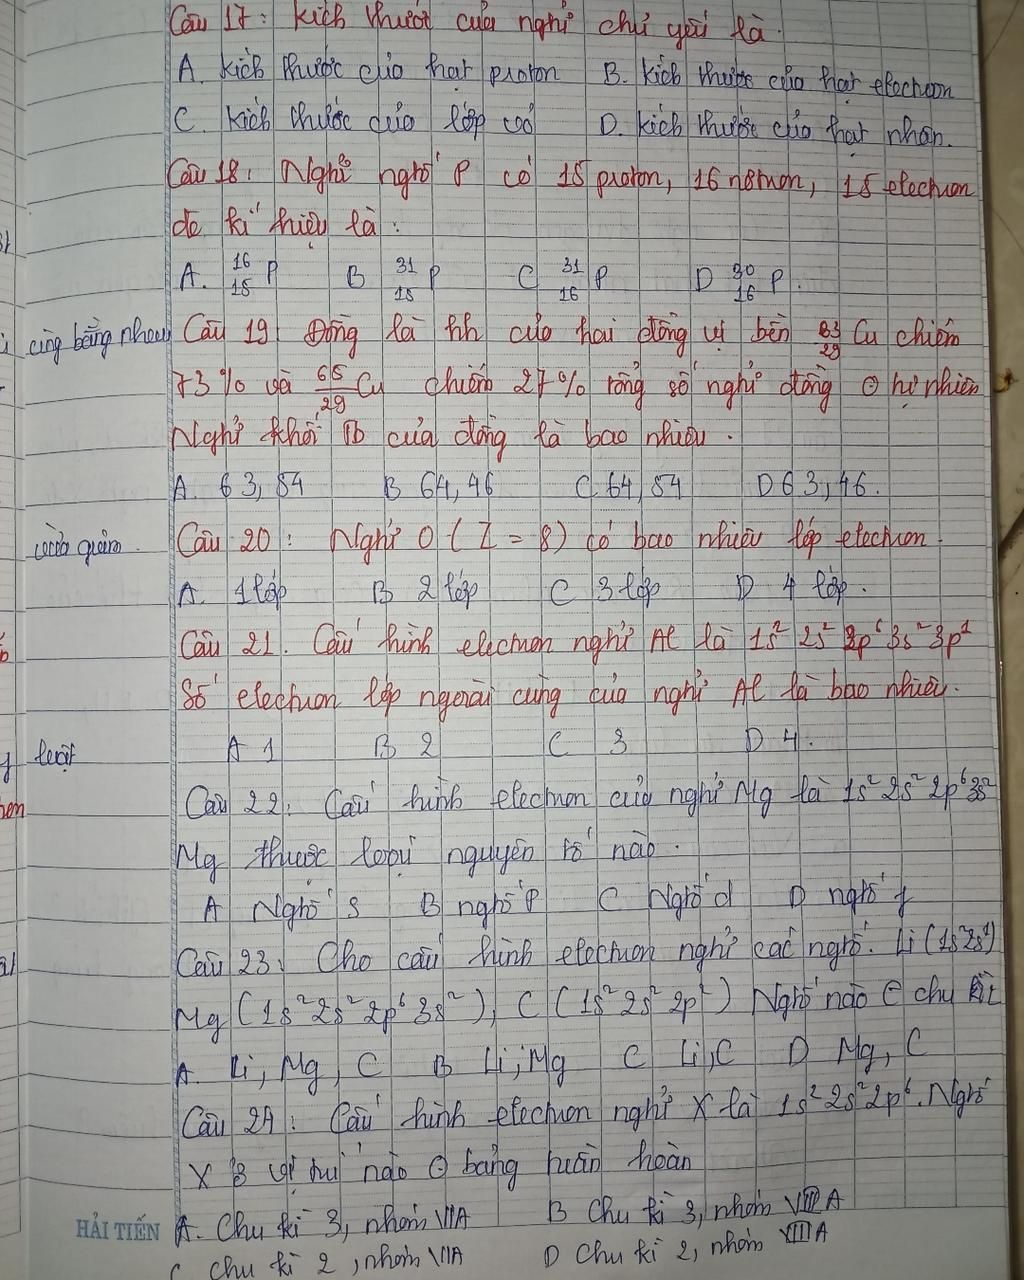 Câu 17: Kích thước của nghỉ chủ yếu là.
A. Kích thước của hạt proton B. Kích thước của hạt electron
C. Kích thước của lớp vỏ D. Kích thước của hạt nhân.
Câu 18: Nghỉ nghtố P có 15 proton, 16 nơtron, 15 electron
kí hiệu là:
A. 16 15 P B 31 15 P C 31 16 P D 30 16 P.
cùng bằng nhau
Câu 19: Đồng là hh của hai đồng vị bền 63 29 Cu chiếm
73% và 65 29 Cu chiếm 27% tổng số nghỉ đồng ở tự nhiên
Nghỉ khối Tb của đồng là bao nhiêu.
A. 63,54 B 64,46 C 64,54 D 63,46.
vừa giảm.
Câu 20: Nghỉ O (Z = 8) có bao nhiêu lớp electron.
A. 1 lớp B 2 lớp C 3 lớp D 4 lớp.
Câu 21. Cấu hình electron nghỉ Al là 1s² 2s² 2p⁶ 3s² 3p¹
Số electron lớp ngoài cùng của nghỉ Al là bao nhiêu.
luật
A 1 B 2 C 3 D 4.
Câu 22: Cấu hình electron của nghỉ Mg là 1s² 2s² 2p⁶ 3s²
Mg thuộc loại nguyên tố nào.
A Nghtố s B nghtố p C Nghtố d D nghtố f
Câu 23: Cho cấu hình electron nghỉ các nghtố. Li (1s² 2s¹)
Mg (1s² 2s² 2p⁶ 3s²), C (1s² 2s² 2p²) Nghtố nào ∈ chu kì
A. Li, Mg, C B Li, Mg C Li, C D Mg, C
Câu 24: Cấu hình electron nghỉ X là 1s² 2s² 2p⁶. Nghtố
X ở vị trí nào ở bảng tuần hoàn
HẢI TIẾN
A. Chu kì 3, nhóm VIIA B Chu kì 3, nhóm VIIIA
C chu kì 2, nhóm VIIA D Chu kì 2, nhóm VIIIA